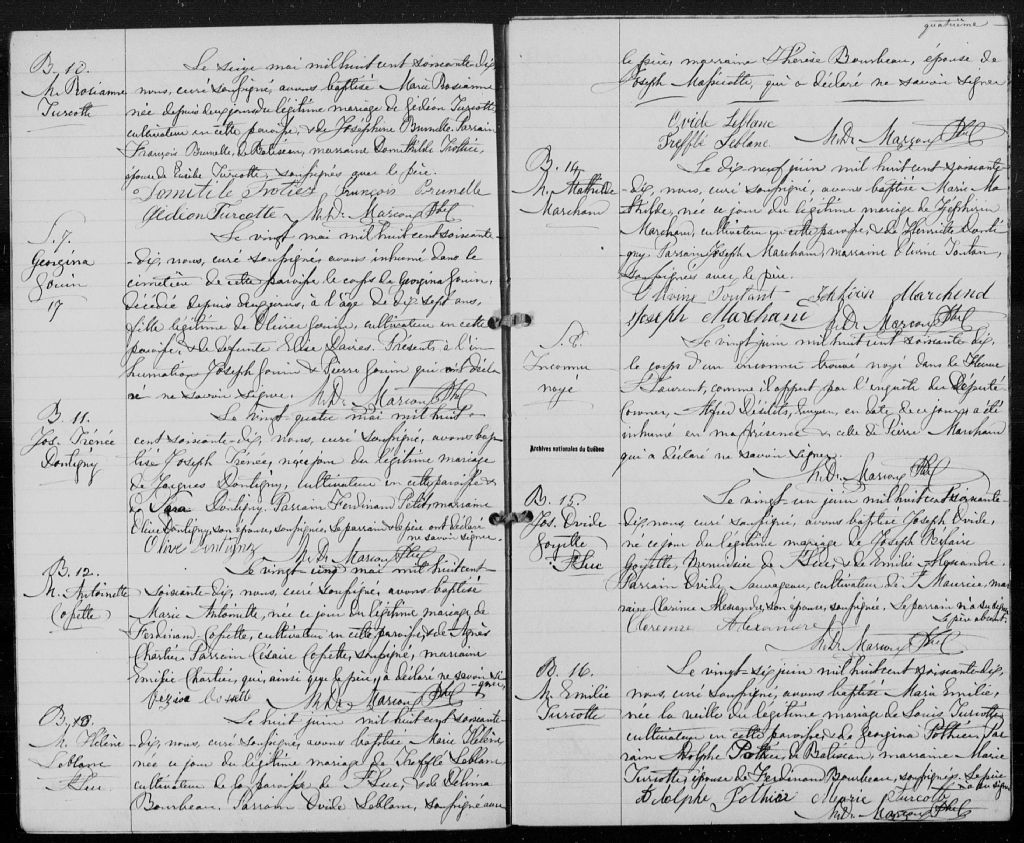 B. 10.
M. Rosianne
Turcotte
Le seize mai mil huit cent soixante-dix,
nous, curé soussigné, avons baptisé Marie Rosianne
née depuis deux jours du légitime mariage de Gédéon Turcotte
cultivateur en cette paroisse, & de Joséphine Brunelle. Parrain
François Brunelle, de Batiscan, marraine Domithilde Trottier,
épouse de Eusèbe Turcotte, soussignés avec le père.
Domitile Trotier François Brunelle
Gédéon Turcotte M. Dr. Marcoux Ptre
S. 7.
Georgina
Gouin
17
Le vingt mai mil huit cent soixante-
dix, nous, curé soussigné, avons inhumé dans le
cimetière de cette paroisse le corps de Georgina Gouin,
décédée depuis deux jours, à l'âge de dix sept ans,
fille légitime de Olivier Gouin, cultivateur en cette
paroisse, & de defunte Elise Lavies. Présents à l'in-
humation Joseph Gouin & Pierre Gouin qui ont décla-
ré ne savoir signer. M. Dr. Marcoux Ptre
B. 11.
Jos. Irénée
Dontigny
Le vingt quatre mai mil huit-
cent soixante-dix, nous, curé soussigné, avons bap-
tisé Joseph Irénée, né ce jour du légitime mariage
de Jacques Dontigny, cultivateur en cette paroisse &
de Sara Dontigny. Parrain Ferdinand Petit, marraine
Olive Dontigny, son épouse, soussignée, Le parrain & le père ont déclaré
ne savoir signer.
Olive Dontigny
M. Dr. Marcoux Ptre
B. 12.
M. Antoinette
Copette
Le vingt-cinq mai mil huit cent-
soixante-dix, nous, curé soussigné, avons baptisé
Marie Antoinette, née ce jour du légitime mariage de
Ferdinand Copette, cultivateur en cette paroisse, & de Agnès
Chartier. Parrain Césaire Copette, soussigné, marraine
Chartier, qui, ainsi que le père, a déclaré ne savoir signer,
M. Dr. Marcoux Ptre
B. 13.
M. Hélène
Leblanc
St Luc
Le huit juin mil huit cent soixante-
dix, nous, curé soussigné, avons baptisé Marie Hélène
née ce jour du légitime mariage de Trefflé Leblanc
cultivateur de la paroisse de St Luc, & de Délima
Bourbeau. Parrain Ovide Leblanc, soussigné avec
quatrième
le père, marraine Thérèse Bourbeau, épouse de
Joseph Massicotte, qui a déclaré ne savoir signer
Ovide Leblanc
Trefflé Leblanc. M. Dr. Marcoux Ptre
B. 14.
M. Mathilde
Marchand
Le dix neuf juin mil huit cent soixante-
dix, nous, curé soussigné, avons baptisé Marie Ma-
thilde, née ce jour du légitime mariage de Zéphirin
Marchand, cultivateur en cette paroisse, & de Henriette Donti-
gny. Parrain Joseph Marchand, marraine Elvine Toutan,
soussignés avec le père.
Elvine Toutant Zéphirin Marchend
Joseph Marchant M. Dr. Marcoux Ptre
S. 8.
Inconnu
noyé
Le vingt juin mil huit cent soixante dix,
le corps d'un inconnu trouvé noyé dans le Fleuve
St Laurent, comme il appert par l'enquête du Député
Coroner, Alfred Désilets, Ecuyer, en date de ce jour, a été
inhumé en ma présence & celle de Pierre Marchand
qui a déclaré ne savoir signer.
M. Dr. Marcoux Ptre
Archives nationales du Québec
B. 15.
Jos. Ovide
Goyette
St Luc
Le vingt-un juin mil huit cent soixante-
dix, nous, curé soussigné, avons baptisé Joseph Ovide,
né ce jour du légitime mariage de Joseph Bélaire
Goyette, Menuisier de St Luc, & de Emilie Alexandre.
Parrain Ovide Sauvageau, cultivateur de St Maurice, mar-
raine Clarince Alexandre, son épouse, soussignée, Le parrain n'a su signer
Le père absent.
Clarence Alexandre
M. Dr. Marcoux Ptre
B. 16.
M. Emilie
Turcotte
Le vingt-six juin mil huit cent soixante-dix,
nous, curé soussigné, avons baptisé Marie Emilie,
née la veille du légitime mariage de Louis Turcotte
cultivateur en cette paroisse, & de Georgina Pothier. Par-
rain Adolphe Pothier de Batiscan, marraine Marie
Turcotte, épouse de Ferdinand Bourbeau, soussignés. Le père
n'a su signer
Adolphe Pothier Marie Turcotte
M. Dr. Marcoux Ptre